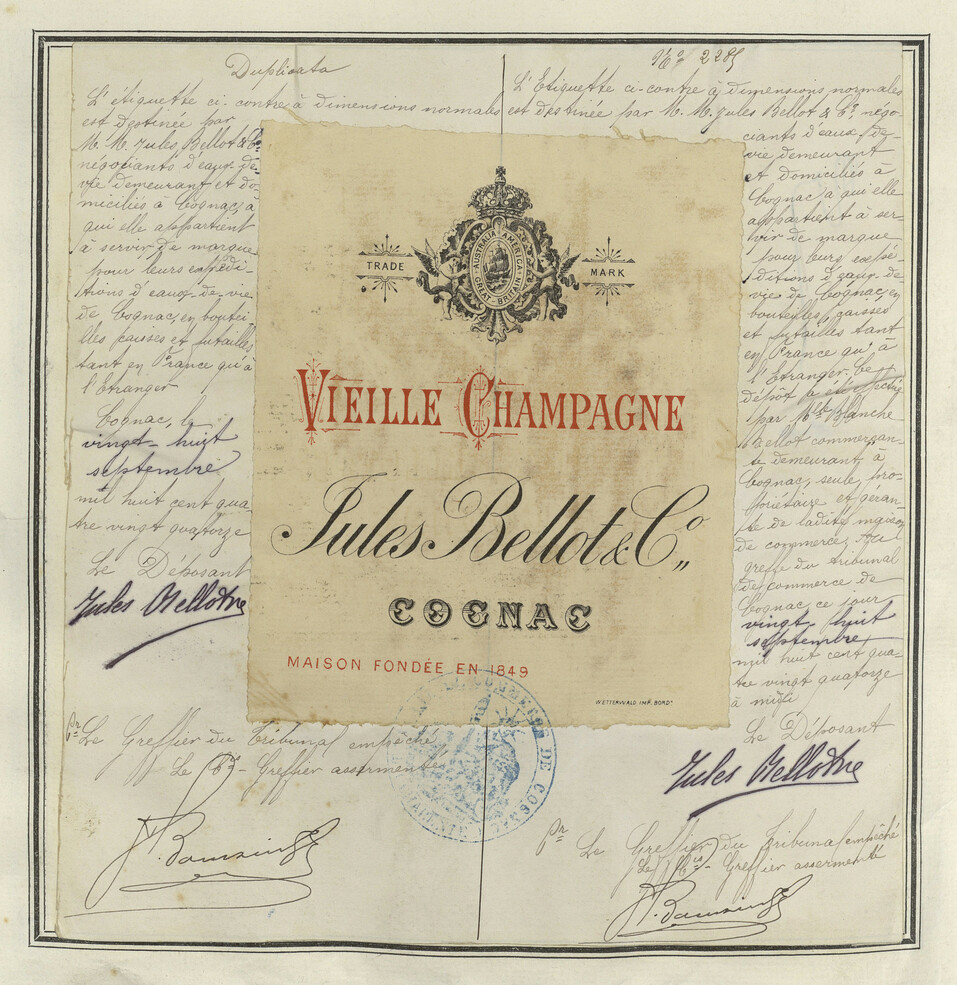 Duplicata
L'étiquette ci-contre à dimensions normales
est destinée par
M. M. Jules Bellot & Cie
négociants d'eaux-de-
vie demeurant et do-
miciliés à Cognac, à
qui elle appartient
à servir de marque
pour leurs expédi-
tions d'eaux-de-vie
de Cognac, en boutei-
lles caisses et futailles
tant en France qu'à
l'Etranger.
Cognac, le
vingt-huit
septembre
mil huit cent qua
tre vingt quatorze
Le Déposant
Jules Bellot
Pr Le Greffier du Tribunal empêché
Le Cis-Greffier assermenté
TRADE
MARK
AUSTRALIA AMERICA INDIA
GREAT-BRITAIN
VIEILLE CHAMPAGNE
Jules Bellot & Co
COGNAC
MAISON FONDÉE EN 1849
WETTERWALD IMP. BORDx
DE COMMERCE DE COGNAC
No 2285
L'Etiquette ci-contre à dimensions normales
est destinée par M. M. Jules Bellot & Cie négo-
ciants d'eaux-de-
vie demeurant
et domiciliés à
Cognac à qui elle
appartient à ser-
vir de marque
pour leurs expé-
ditions d'eaux-de-
vie de Cognac, en
bouteilles, caisses
et futailles tant
en France qu'à
l'Etranger. Ce
dépôt a été
par Blanche
Bellot commerçan-
te demeurant à
Cognac, seule pro-
priétaire et géran-
te de ladite maison
de commerce. Au
greffe du tribunal
de commerce de
Cognac, ce jour
vingt-huit
septembre
mil huit cent qua-
tre vingt quatorze
à midi
Le Déposant
Jules Bellot
Pr Le Greffier du Tribunal empêché
Le Cis-Greffier assermenté